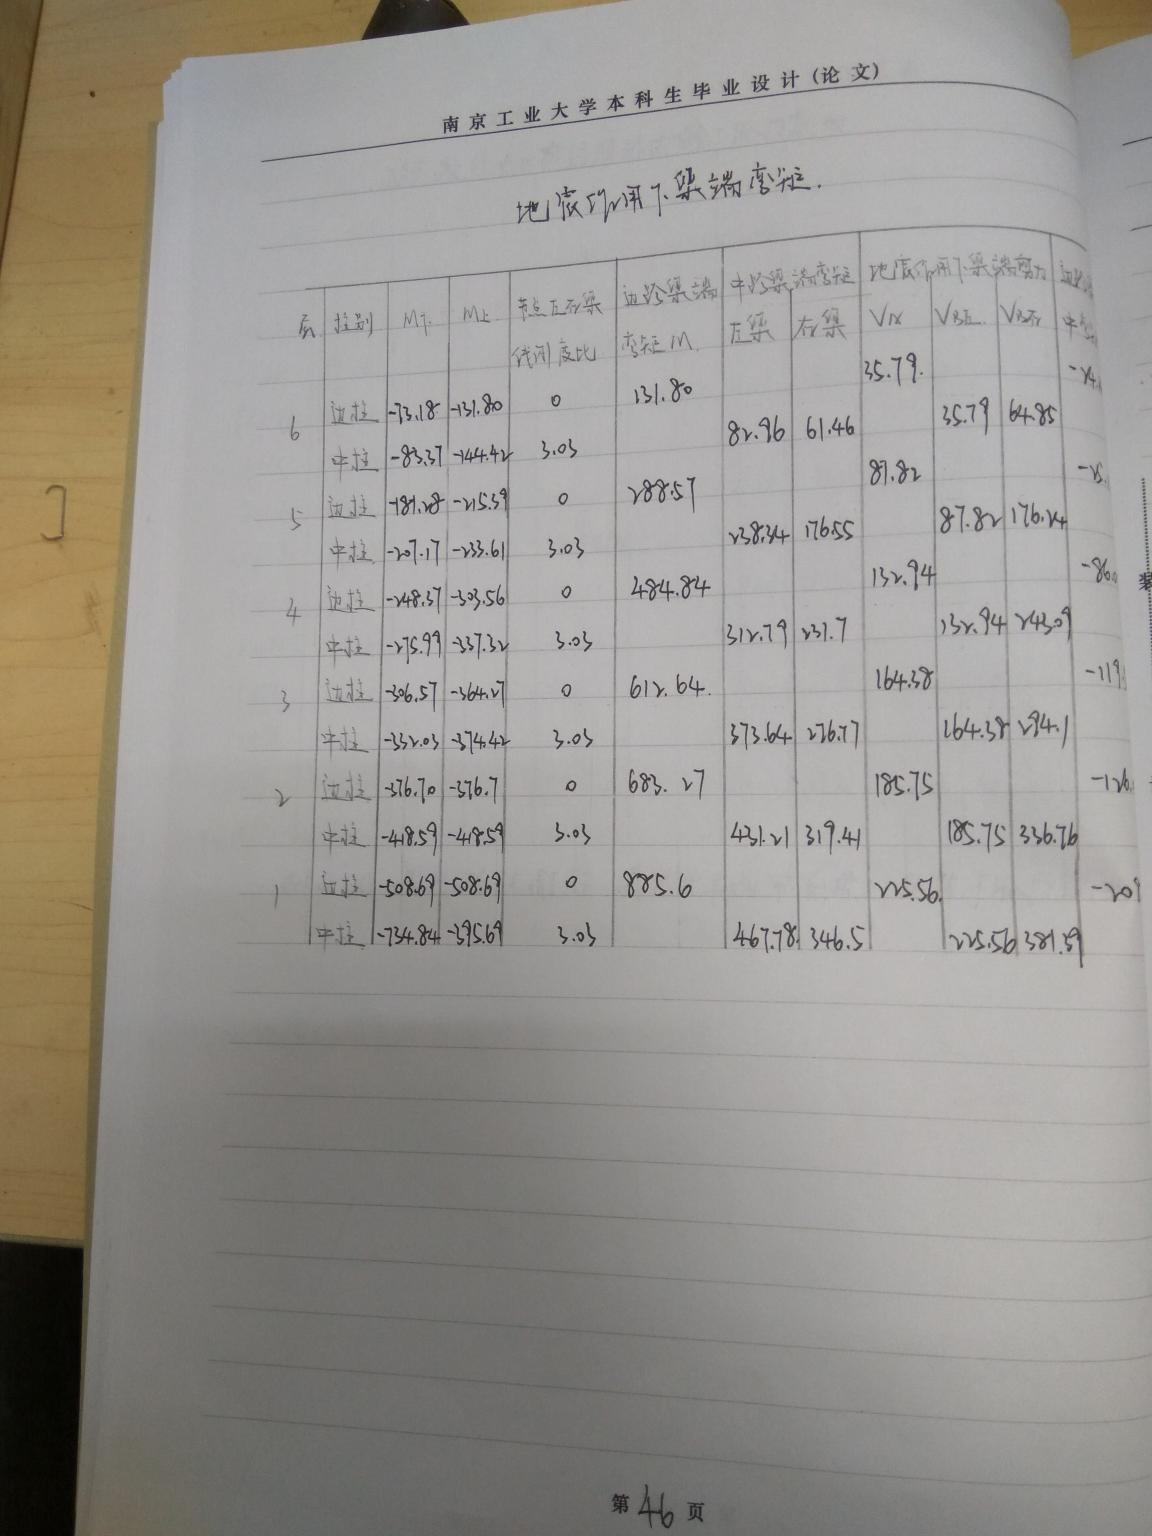 南京工业大学本科生毕业设计(论文)
地震作用下梁端弯矩.
层 柱别 M下 M上 节点左右梁线刚度比 边跨梁端弯矩M 中跨梁端弯矩 左梁 右梁 地震作用下梁端剪力 VA VB左 VB右
35.79.
6 边柱 -73.18 -131.80 0 131.80
中柱 -83.37 -144.42 3.03 82.96 61.46 35.79 64.85
87.82
5 边柱 -181.28 -215.39 0 288.57
中柱 -207.17 -233.61 3.03 238.34 176.55 87.82 176.24
132.94
4 边柱 -248.37 -303.56 0 484.84
中柱 -275.99 -337.32 3.03 312.79 231.7 132.94 243.09
3 边柱 -306.57 -364.27 0 612.64. 164.38
中柱 -332.03 -374.42 3.03 373.64 276.77 164.38 294.1
2 边柱 -376.70 -376.7 0 683.27 185.75
中柱 -418.59 -418.59 3.03 431.21 319.41 185.75 336.76
1 边柱 -508.69 -508.69 0 885.6 225.56.
中柱 -734.84 -395.69 3.03 467.78 346.5 225.56 381.39
装
第46页